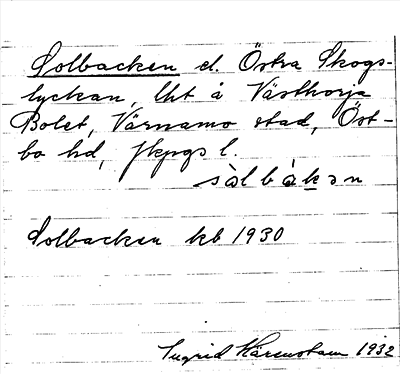 Solbacken el. Östra Skogs-
lyckan, lht å Västhorja
Bolet, Värnamo stad, Öst-
bo hd, Jkpgs l.
sòlbàkən
Solbacken kb 1930
Ingrid Härenstam 1932